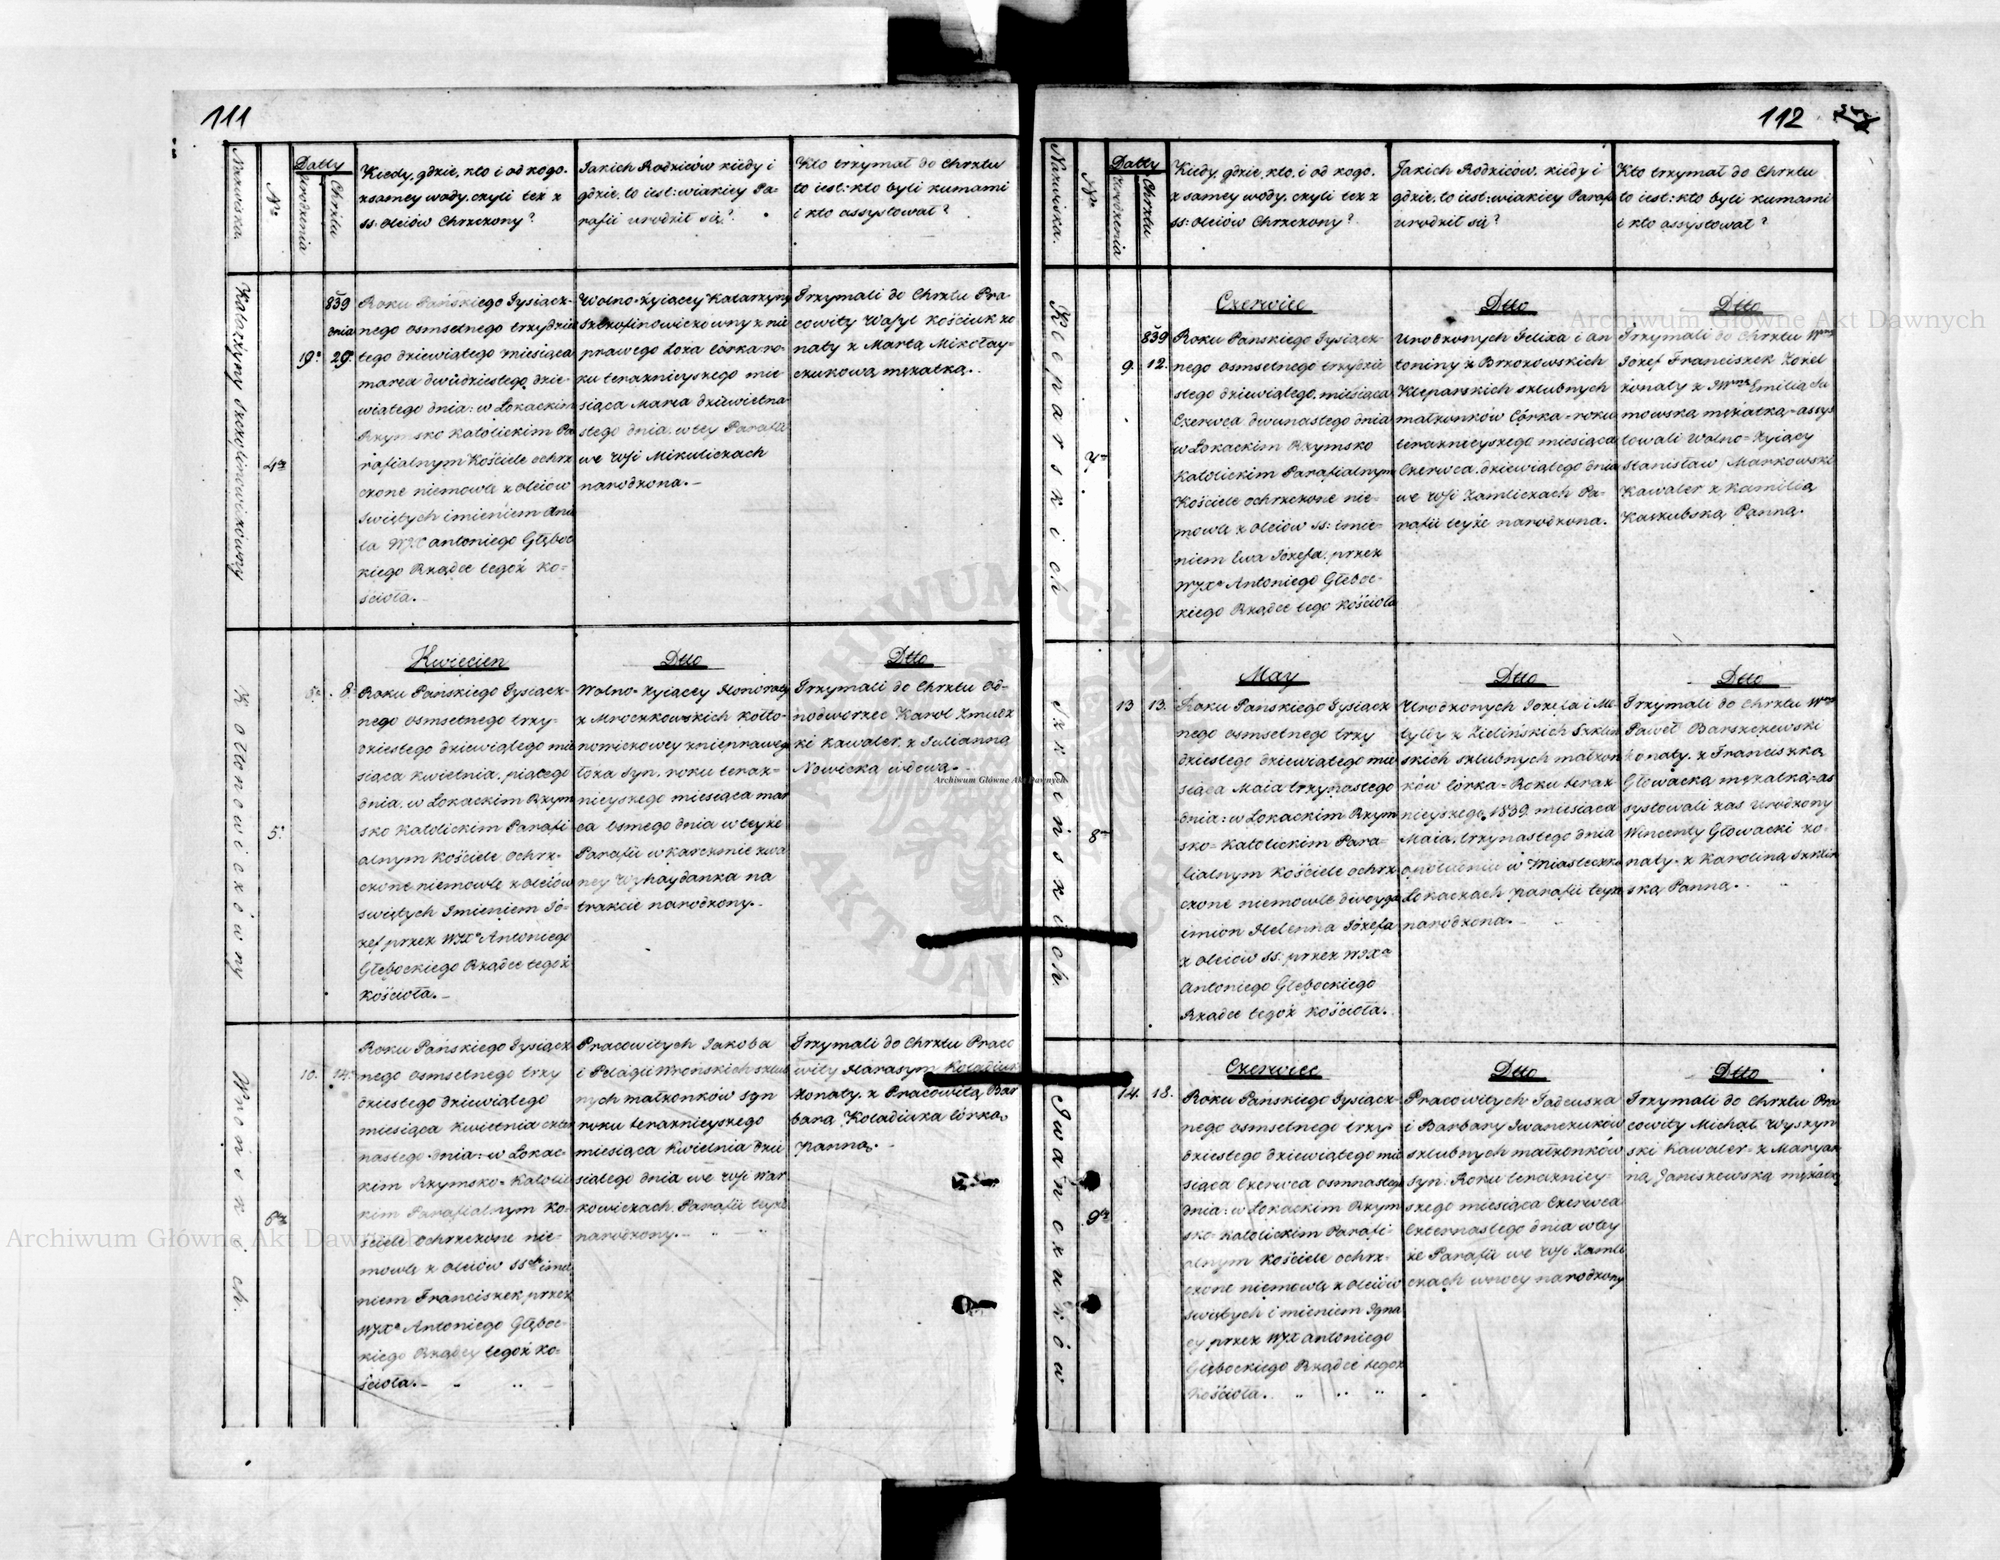 111
Nazwiska.
Nro
Datty
Urodzenia
Chrztu
Kiedy, gdzie, kto i od kogo.
z samey wody, czyli też z
SS: oleiów Chrzczony?
Jakich Rodziców kiedy i
gdzie, to iest: w iakiey Pa-
rafii urodził się?
Kto trzymał do Chrztu
to iest: kto byli kumami
i kto assystował?
4.
839
dnia
19. 29.
Roku Pańskiego Tysiącz-
nego osmsetnego trzydzie
tego dziewiątego miesiąca
marca dwudziestego dzie-
wiątego dnia: w Łokackim
Rzymsko Katolickim Pa
rafialnym Kościele ochrz
czone niemowle z oleiów
świętych imieniem Ane
la WJX antoniego Głęboc
kiego Rządce tegoż Ko=
ścioła._
Wolno=żyiącey Katarzyny
Szerafinowiczowny z nie
prawego Łoża Córka ro-
ku teraznieyszego mie
siąca Marca dziewietna-
stego dnia. w tey Parafii
we Wsi Mikuliczach
narodzona._
Trzymali do Chrztu Pra
cowity Wasyl Kościuk żo
naty z Martą Mikołay-
czukową mężatką.
Kwiecien
Dtto
Dtto
Kołtonowiczówny
5.
5. 8.
Roku Pańskiego Tysiącz-
nego osmsetnego trzy-
dziestego dziewiątego mie
siąca Kwietnia, piątego
dnia. w Łokackim Rzym
sko Katolickim Parafi
alnym Kościele ochrz-
czone niemowle z oleiów
świętych Imieniem Jó-
zef przez WJXa Antoniego
Głębockiego Rządce tegoż
Kościoła._
Wolno=żyiącey Honoraty
z Mroczkowskich Kołto-
nowiczowey z nieprawego
łoża syn. roku teraz-
nieyszego miesiąca mar
ca osmego dnia w teyże
Parafii w Karczmie zwa
ney Wyhaydanka na
trakcie narodzony._
Trzymali do Chrztu Od-
nodworzec Karol
Kawaler z Julianną
Nowicką wdową._
Wrońskich.
6.
10. 14.
Roku Pańskiego Tysiącz
nego osmsetnego trzy
dziestego dziewiątego
miesiąca Kwietnia czter
nastego dnia: w Łokac-
kim Rzymsko=Katolic
kim Parafialnym Ko-
ściele ochrzczone nie-
mowle z oleiów SSch imie
niem Franciszek przez
WJXa Antoniego Głęboc-
kiego Rządcy tegoż Ko-
ścioła._
Pracowitych Jakoba
i Pelagii Wrońskich szlub
nych małżonków syn
roku teraznieyszego
miesiąca Kwietnia dzie
siątego dnia we Wsi War
kowiczach Parafii teyże
narodzony._
Trzymali do Chrztu Praco
wity Harasym Koladiuk
żonaty z Pracowitą Bar
barą Koladiuka córką
panną._
112
Nazwiska.
Nro
Datty
Urodzenia
Chrztu
Kiedy, gdzie, kto, i od kogo.
z samey wody, czyli też z
SS: oleiów Chrzczony?
Jakich Rodziców, kiedy i
gdzie, to iest: w iakiey Paraf
urodził się?
Kto trzymał do Chrztu
to iest: kto byli kumami
i kto assystował?
Czerwiec
Dtto
Dtto
Kleparskich
839
9. 12.
Roku Pańskiego Tysiącz-
nego osmsetnego trzydzie
stego dziewiątego miesiąca
Czerwca dwunastego dnia
w Łokackim Rzymsko
Katolickim Parafialnym
Kościele ochrzczone nie-
mowle z oleiów SS: imie-
niem Ewa Józefa, przez
WJXa Antoniego Głęboc-
kiego Rządce tego Kościoła
Urodzonych Felixa i an
toniny z Brzozowskich
Kleparskich szlubnych
małżonków Córka=roku
teraznieyszego miesiąca
Czerwca dziewiątego dnia
we Wsi Zamliczach Pa-
rafii teyże narodzona.
Trzymali do Chrztu
Józef Franciszek
żonaty z Emilią
mowską mężatką=assys
towali Wolno=żyiący
Stanisław Markowski
Kawaler z Kamilią
Kaszubską Panną.
May
Dtto
Dtto
Szklińskich
8
13 13.
Roku Pańskiego Tysiącz
nego osmsetnego trzy
dziestego dziewiątego mie
siąca Maia trzynastego
dnia: w Łokackim Rzym
sko=Katolickim Para-
fialnym Kościele ochrz
czone niemowle dwoyga
imion Helenna Józefa
z oleiów SS: przez WJXa
Antoniego Głębockiego
Rządce tegoż Kościoła.
Urodzonych Józefa i Ma
tyldy z Zielińskich Szkliń
skich szlubnych małżon
ków Córka=Roku teraz
nieyszego 1839. miesiąca
Maia. trzynastego dnia
o południu w Miasteczku
Łokaczach parafii teyże
narodzona.
Trzymali do Chrztu
Paweł Barszczewski
żonaty. z Franciszką
Głowacką mężatką=as
systowali zas Urodzony
Wincenty Głowacki żo-
naty=z Karoliną Szkliń
ską Panną.
Czerwiec
Dtto
Dtto
Iwańczuków
9
14. 18.
Roku Pańskiego Tysiącz-
nego osmsetnego trzy-
dziestego dziewiątego mie
siąca Czerwca osmnastego
dnia: w Łokackim Rzym
sko=Katolickim Parafi-
alnym Kościele ochrz-
czone niemowle z oleiów
świętych imieniem Igna
cy przez WJX antoniego
Głębockiego Rządce tegoż
Kościoła.
Pracowitych Tadeusza
i Barbary Iwanczuków
szlubnych małżonków
syn: Roku teraźniey-
szego miesiąca Czerwca
Czternastego dnia w tey
że Parafii we Wsi Zamli
czach w nocy narodzony
Trzymali do Chrztu Pra
cowity Michał Wyszyn
ski Kawaler=z Maryan
ną Janiszewską mężatką
Archiwum Główne Akt Dawnych
Archiwum Główne Akt Dawnych
Archiwum Główne Akt Dawnych